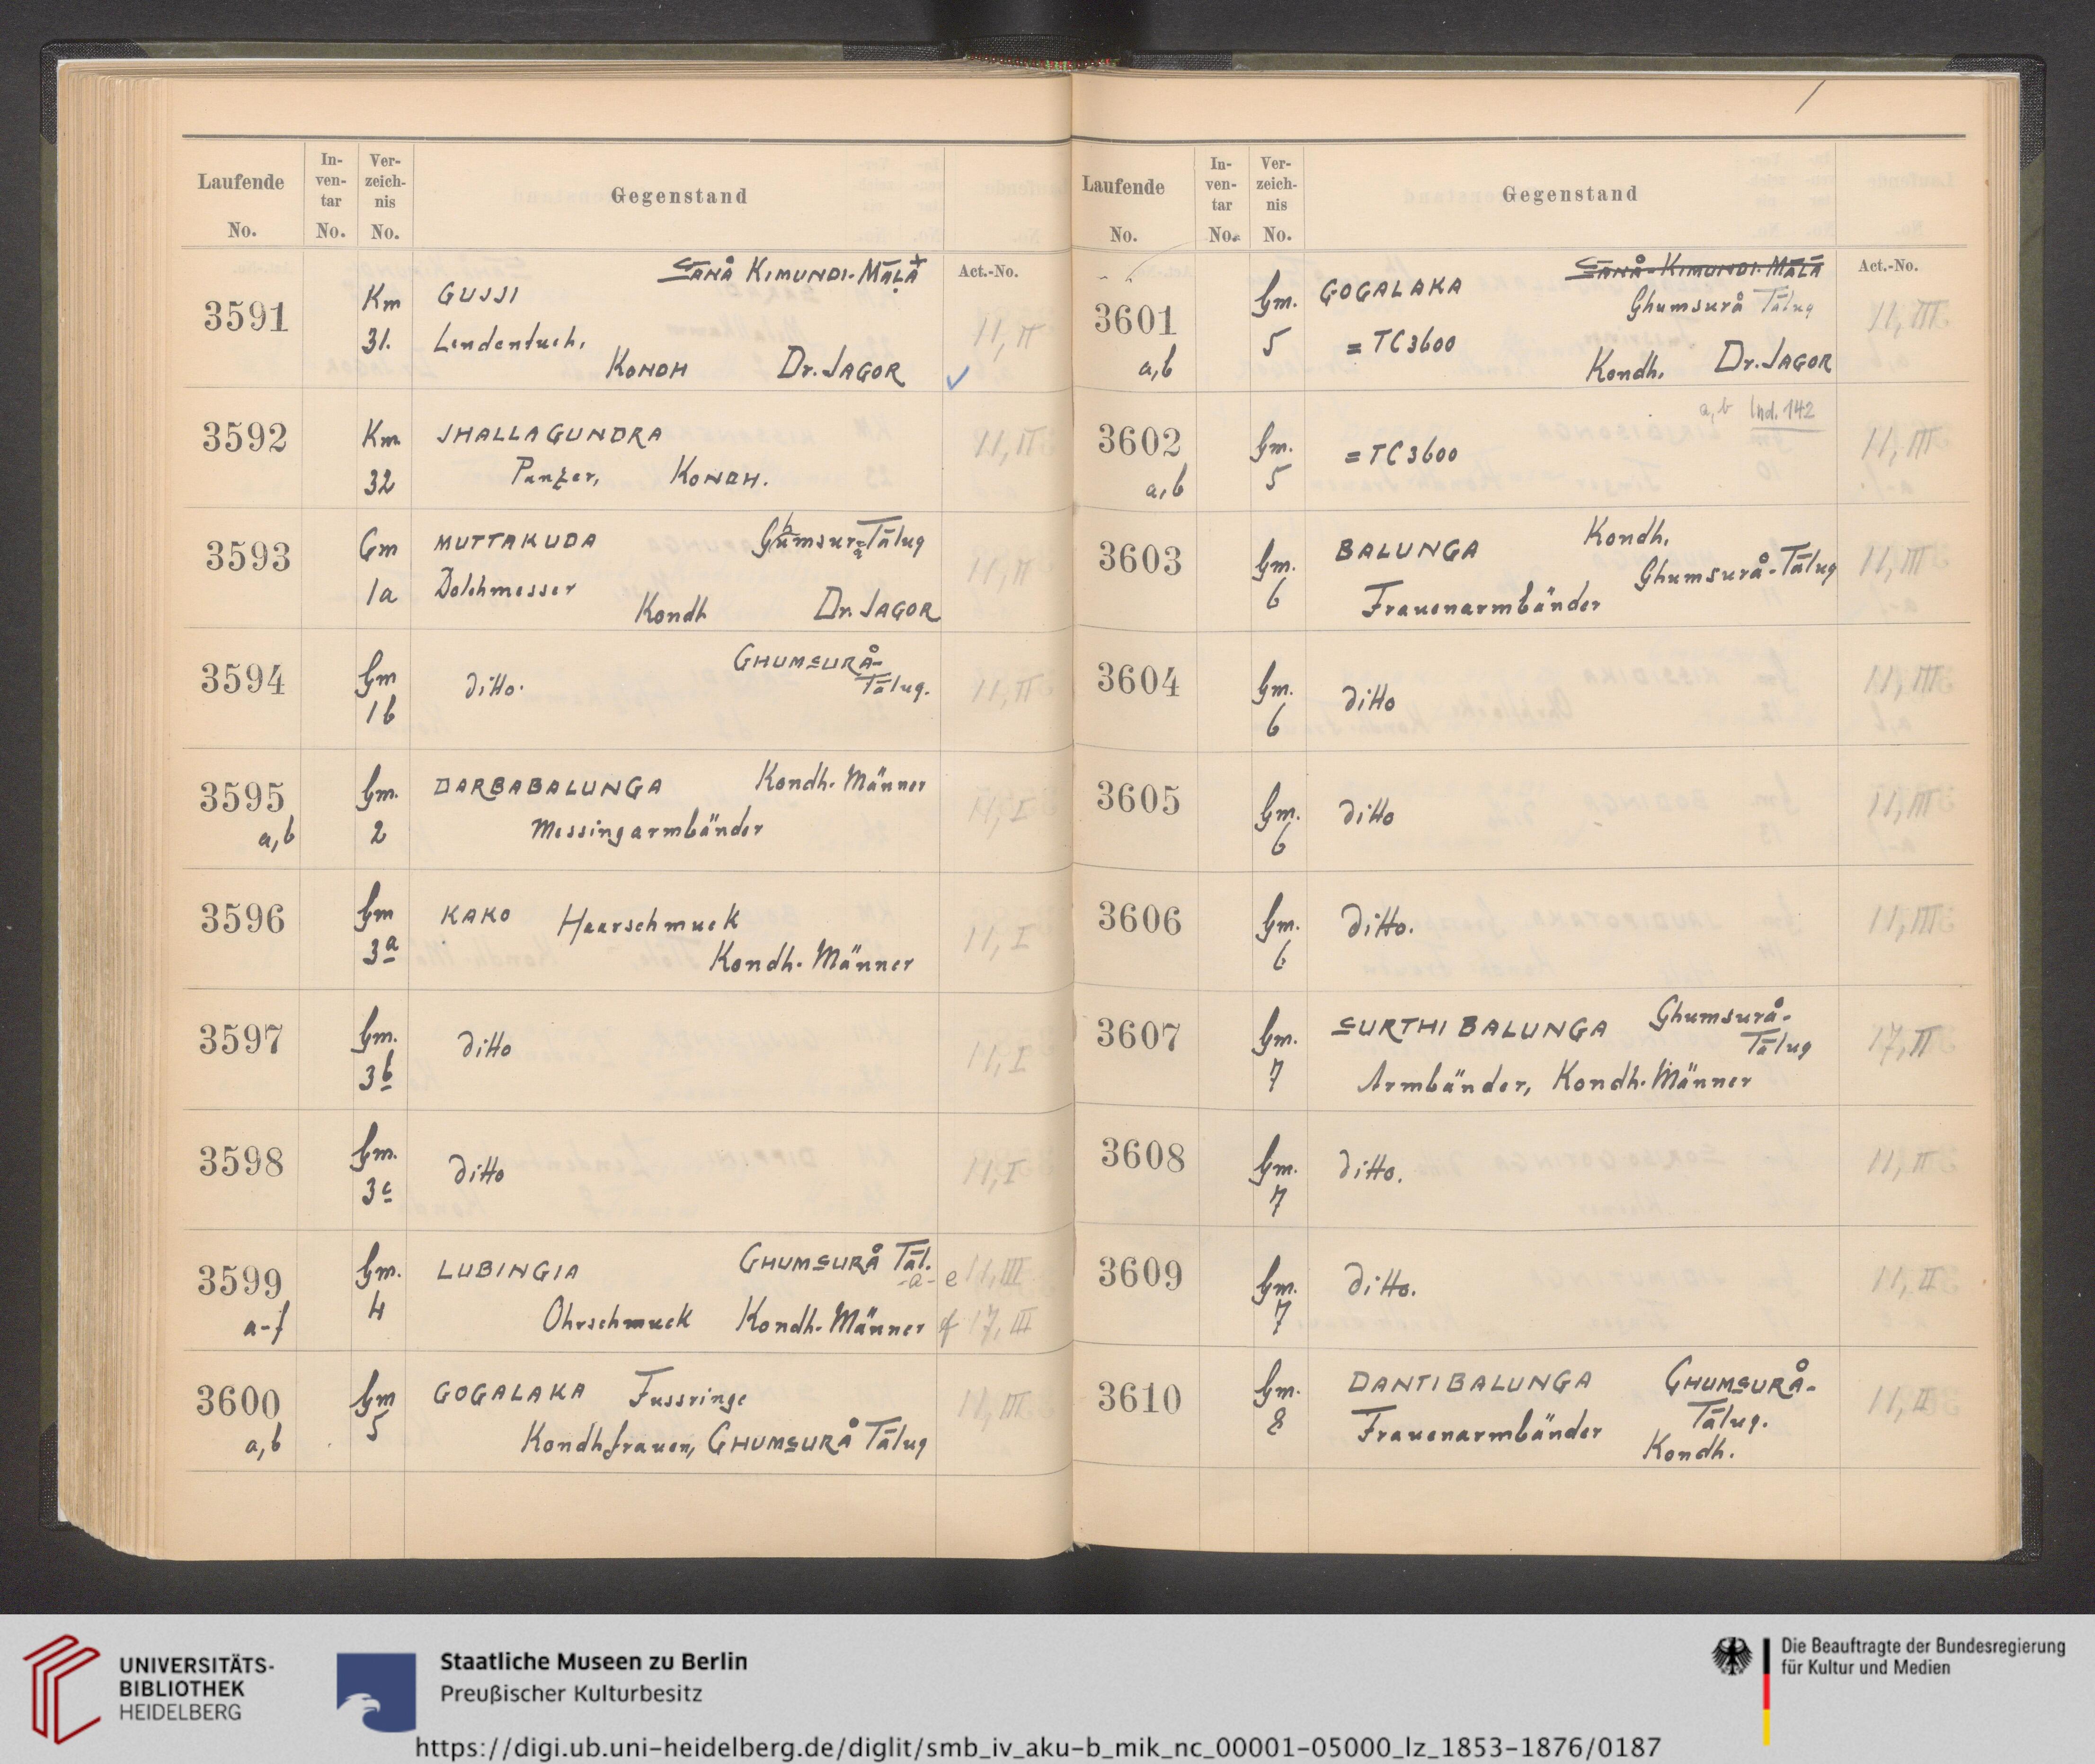 Laufende No. In-ven-tar No. Ver-zeich-nis No. Gegenstand
Act.-No.
3591 Km 31. GUJJI SĀNÅ KIMUNDI-MĀLĀ 11, II
Lendentuch.
KONDH Dr. JAGOR
3592 Km 32 JHALLAGUNDRA 11, II
Panzer, KONDH.
3593 Gm 1a MUTTAKUDA Ghumsurā-Tālug 11, II
Dolchmesser
Kondh Dr. JAGOR
3594 Gm 1b ditto. GHUMSURÅ-Tālug. 11, II
3595 a,b Gm. 2 DARBABALUNGA Kondh-Männer 11, I
Messingarmbänder
3596 Gm 3a KAKO Haarschmuck 11, I
Kondh-Männer
3597 Gm. 3b ditto 11, I
3598 Gm. 3c ditto 11, I
3599 a-f Gm. 4 LUBINGIA GHUMSURÅ Tāl. -a-e 11, III
Ohrschmuck Kondh-Männer f 17, III
3600 a,b Gm 5 GOGALAKA Fussringe 11, III
Kondhfrauen, GHUMSURÅ Tālug
Laufende No. In-ven-tar No. Ver-zeich-nis No. Gegenstand
Act.-No.
3601 a,b Gm. 5 GOGALAKA SĀNÅ-KIMUNDI-MĀLĀ 11, III
Ghumsurå Tālug
= TC 3600
Kondh. Dr. JAGOR
3602 a,b Gm. 5 = TC 3600 a,b Ind. 142 11, III
3603 Gm. 6 BALUNGA Kondh. 11, III
Ghumsurå-Tālug
Frauenarmbänder
3604 Gm. 6 ditto 11, III
3605 Gm. 6 ditto 11, III
3606 Gm. 6 ditto. 11, III
3607 Gm. 7 SURTHI BALUNGA Ghumsurå-Tālug 17, II
Armbänder, Kondh-Männer
3608 Gm. 7 ditto. 11, II
3609 Gm. 7 ditto. 11, II
3610 Gm. 8 DANTIBALUNGA GHUMSURÅ-Tālug. 11, II
Frauenarmbänder
Kondh.
UNIVERSITÄTS-
BIBLIOTHEK
HEIDELBERG
Staatliche Museen zu Berlin
Preußischer Kulturbesitz
Die Beauftragte der Bundesregierung
für Kultur und Medien
https://digi.ub.uni-heidelberg.de/diglit/smb_iv_aku-b_mik_nc_00001-05000_lz_1853-1876/0187